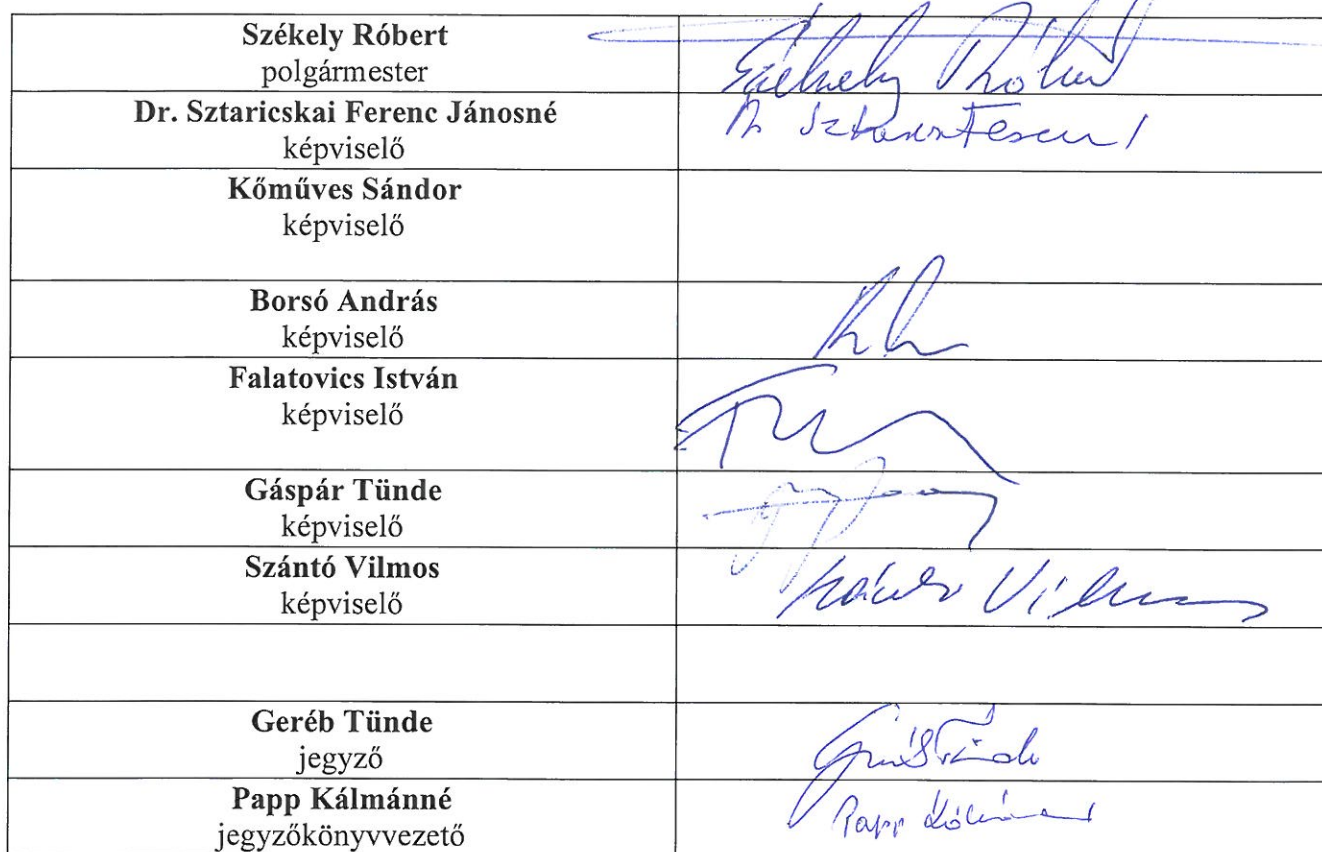 Székely Róbert
polgármester
Székely Róbert
Dr. Sztaricskai Ferenc Jánosné
képviselő
Kőműves Sándor
képviselő
Borsó András
képviselő
Falatovics István
képviselő
Gáspár Tünde
képviselő
Szántó Vilmos
képviselő
Szántó Vilmos
Geréb Tünde
jegyző
Papp Kálmánné
jegyzőkönyvvezető
Papp Kálmánné